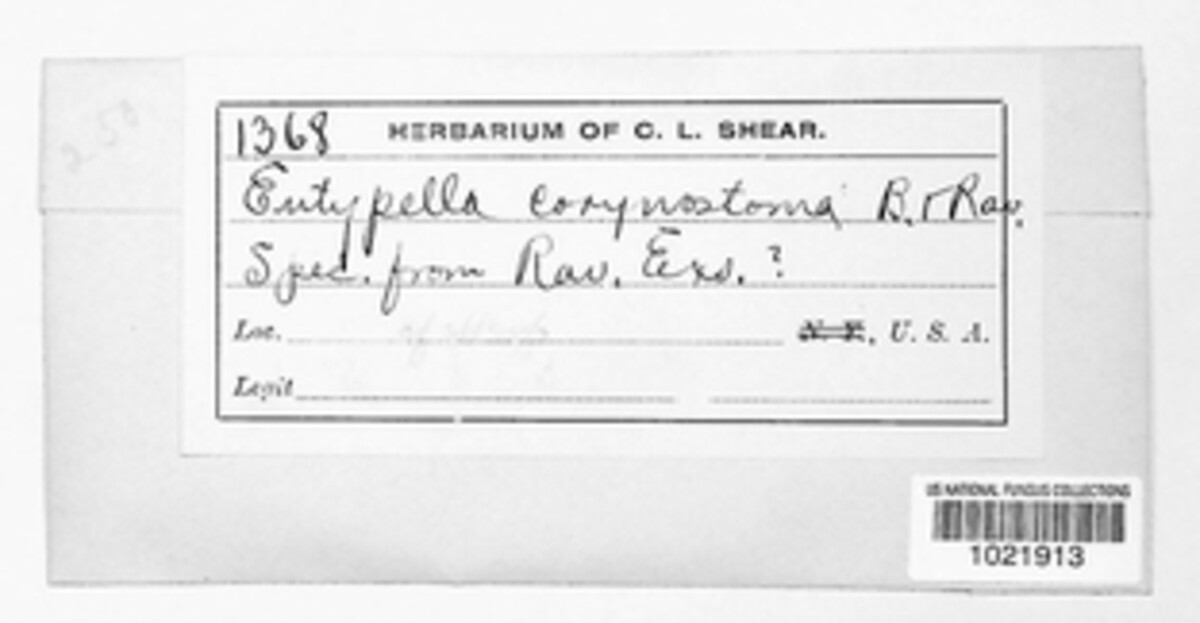 250
1368 HERBARIUM OF C. L. SHEAR.
Eutypella corynostoma B. & Rav.
Spec. from Rav. Exs. ?
Loc. N. Y., U. S. A.
Legit
US NATIONAL FUNGUS COLLECTIONS
1021913